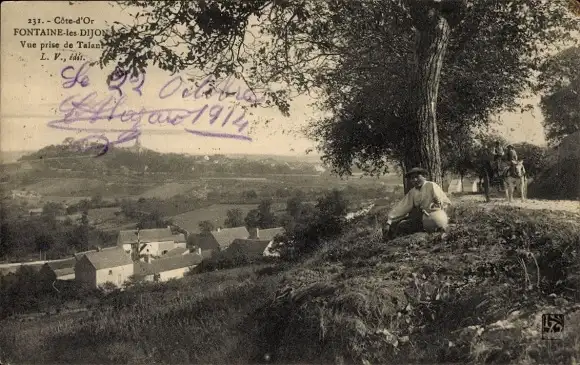 231. - Côte-d'Or
FONTAINE-les DIJON
Vue prise de Talant
L. V., édit.
Le 22 Octobre
1914